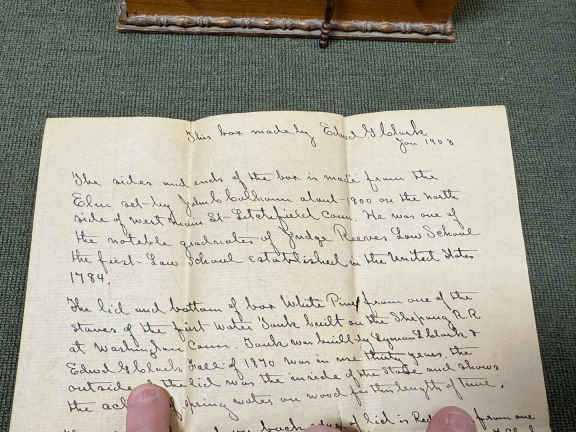 This box made by Edwd G Clark
Jan 1903
The sides and ends of the box is made from the
Elm set by John C Calhoun about 1800 on the north
side of west Main St - Litchfield Conn. He was one of
the notable graduates of Judge Reeves Law School
the first Law School established in the United States
1784.
The lid and bottom of box White Pine from one of the
staves of the first Water Tank built on the Shepaug R.R
at Washington Conn. Tank was built by Lyman G Clark &
Edwd G Clark Fall of 1870 was in use thirty years. the
outside the lid was the inside of the Stave and shows
the of spring water on wood for this length of time.
back edge of lid is from one